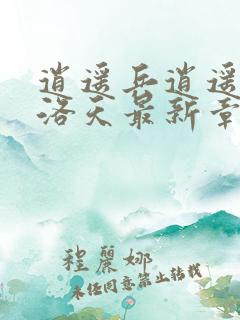 逍遥兵逍遥
洛天最新章
程丽娜
未经同意禁止转载